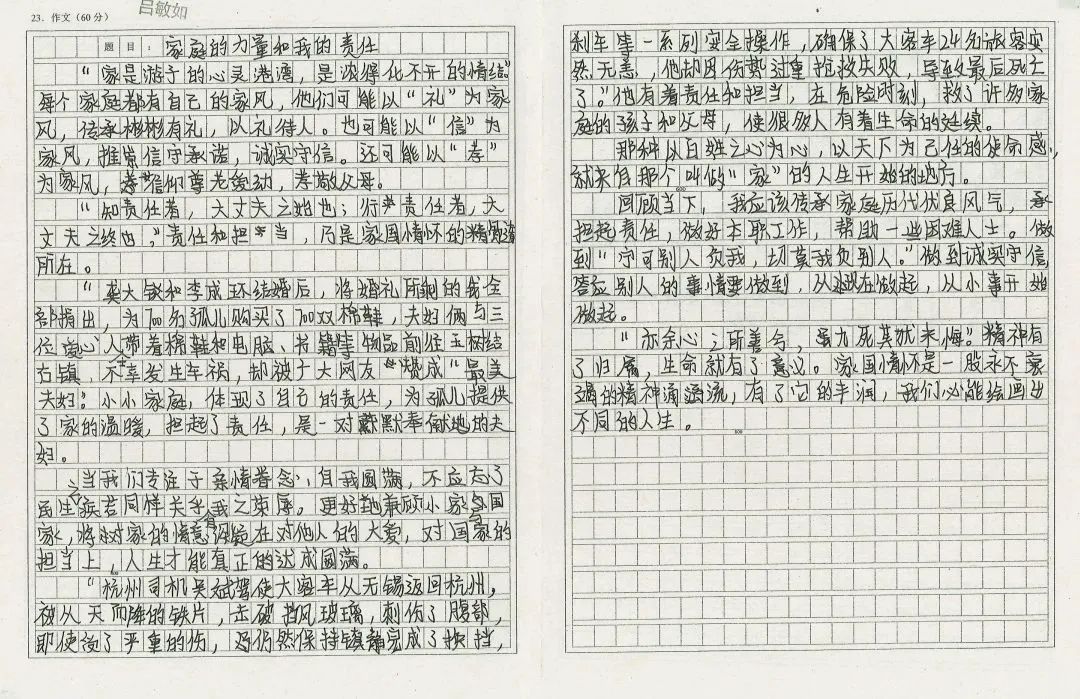 吕敏如
23．作文（60 分）
题 目：家庭的力量和我的责任
“家是游子的心灵港湾，是浓得化不开的情结。”
每个家庭都有自己的家风，他们可能以“礼”为家
风，传承彬彬有礼，以礼待人。也可能以“信”为
家风，推崇信守承诺，诚实守信。还可能以“孝”
为家风，信仰尊老爱幼，孝敬父母。
“知责任者，大丈夫之始也；行责任者，大
丈夫之终也，”责任和担当，乃是家国情怀的精髓
所在。
“龚大锬和李成环结婚后，将婚礼所剩的钱全
部捐出，为700名孤儿购买了700双棉鞋，夫妇俩与三
位爱心人士带着棉鞋和电脑、书籍等物品前往玉树结
古镇，不幸发生车祸，却被广大网友赞成“最美
夫妇”。小小家庭，体现了自己的责任，为孤儿提供
了家的温暖，担起了责任，是一对默默奉献地的夫
妇。
当我们专注于亲情眷念、自我圆满，不应忘了
民生疾苦同样关乎我之荣辱。更好地兼顾小家与国
家，将对家的情意凝在对他人的大爱，对国家的
担当上，人生才能真正的达成圆满。
“杭州司机吴斌驾使大客车从无锡返回杭州，
被从天而降的铁片，击破挡风玻璃，刺伤了腹部，
即使受了严重的伤，仍然保持镇静完成了换挡，
刹车等一系列安全操作，确保了大客车24名旅客安
然无恙，他却因伤势过重抢救失败，导致最后死亡
了。”他有着责任和担当，在危险时刻，救了许多家
庭的孩子和父母，使很多人有着生命的延续。
那种以百姓之心为心，以天下为己任的使命感，
就来自那个叫做“家”的人生开始的地方。
600
回顾当下，我应该传承家庭历代优良风气，承
担起责任，做好本职工作，帮助一些困难人士。做
到“宁可别人负我，切莫我负别人。”做到诚实守信，
答应别人的事情要做到，从现在做起，从小事开始
做起。
“亦余心之所善兮，虽九死其犹未悔。”精神有
了归属，生命就有了意义。家国情怀是一股永不衰
竭的精神涌流，有了它的丰润，我们必能绘画出
不同的人生。
800